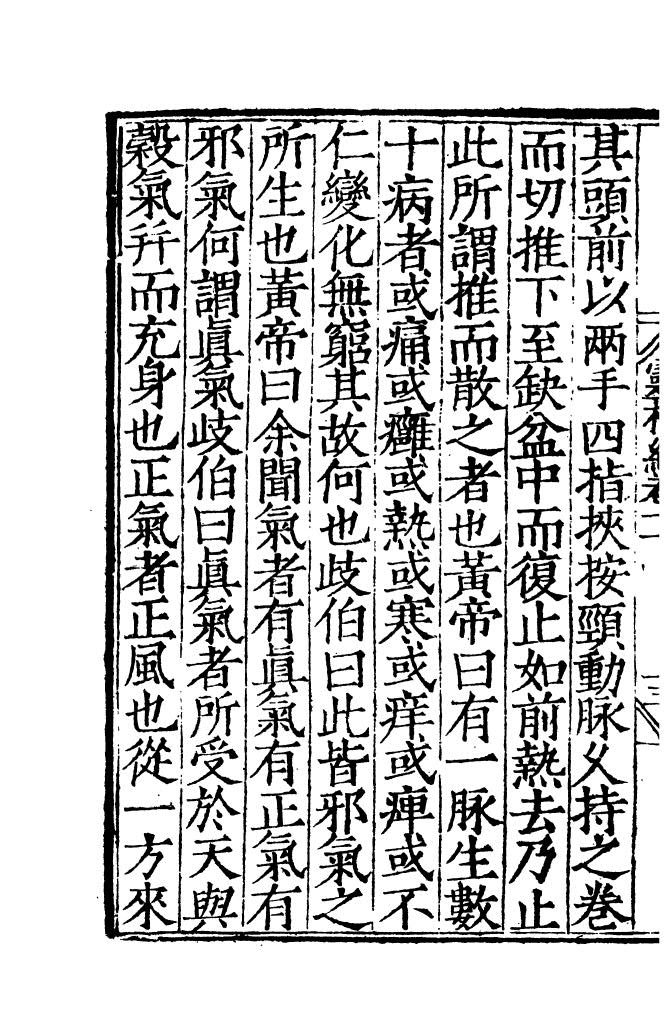 其頭前以兩手四指挾按頸動脉久持之巻
而切推下至缺盆中而復止如前熱去乃止
此所謂推而散之者也黃帝曰有一脉生數
十病者或痛或癰或熱或寒或痒或痺或不
仁變化無窮其故何也歧伯曰此皆邪氣之
所生也黃帝曰余聞氣者有眞氣有正氣有
邪氣何謂眞氣歧伯曰眞氣者所受於天與
穀氣幷而充身也正氣者正風也從一方來